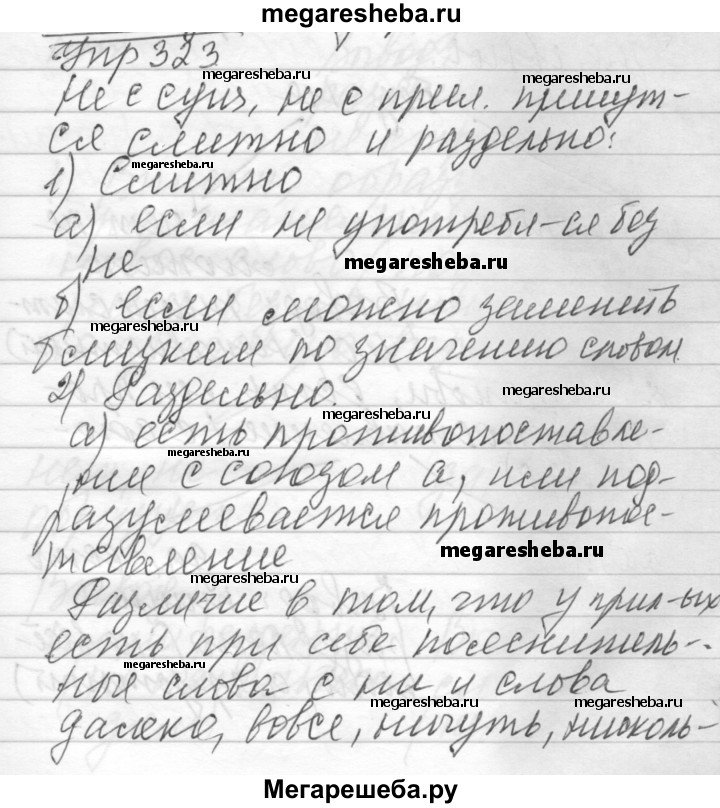 megaresheba.ru
Упр 323
megaresheba.ru
megaresheba.ru
Не с сущ, не с прил. пишут-
ся слитно и раздельно:
megaresheba.ru
1) Слитно
а) если не употребл-ся без
не
megaresheba.ru
б) если можно заменить
megaresheba.ru
близким по значению словом
2) Раздельно.
megaresheba.ru
megaresheba.ru
а) есть противопоставле-
megaresheba.ru
ние с союзом а, или под-
разумевается противопос-
тавление
megaresheba.ru
megaresheba.ru
Различие в том, что у прил-ых
есть при себе пояснитель-
megaresheba.ru
ные слова с ни и слова
megaresheba.ru
megaresheba.ru
далеко, вовсе, ничуть, нисколь-
Мегарешеба.ру